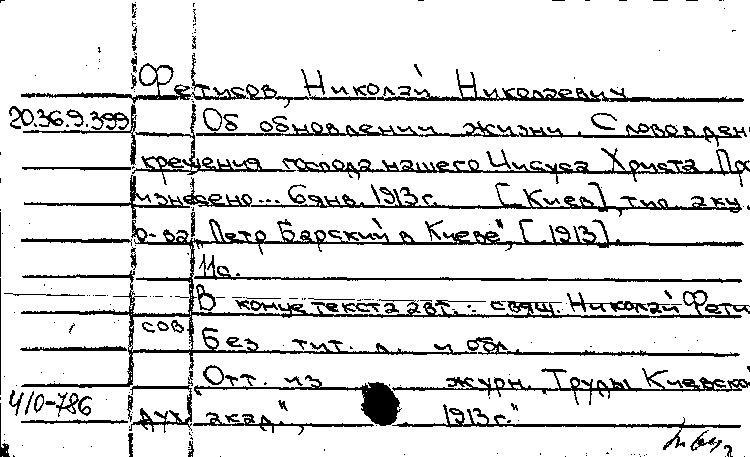 Фетисов, Николай Николаевич
20.36.9.399 Об обновлении жизни. Слово в ден
крещения господа нашего Иисуса Христа. Про
изнесено... 6 янв. 1913 г. [Киев], тип. акц.
о-ва „Петр Барский в Киеве", [1913].
11 с.
В конце текста авт.: свящ. Николай Фети
сов
Без тит. л. и обл.
„Отт. из журн. „Труды Киевской
4/0-786 дух. акад.", 1913 г."